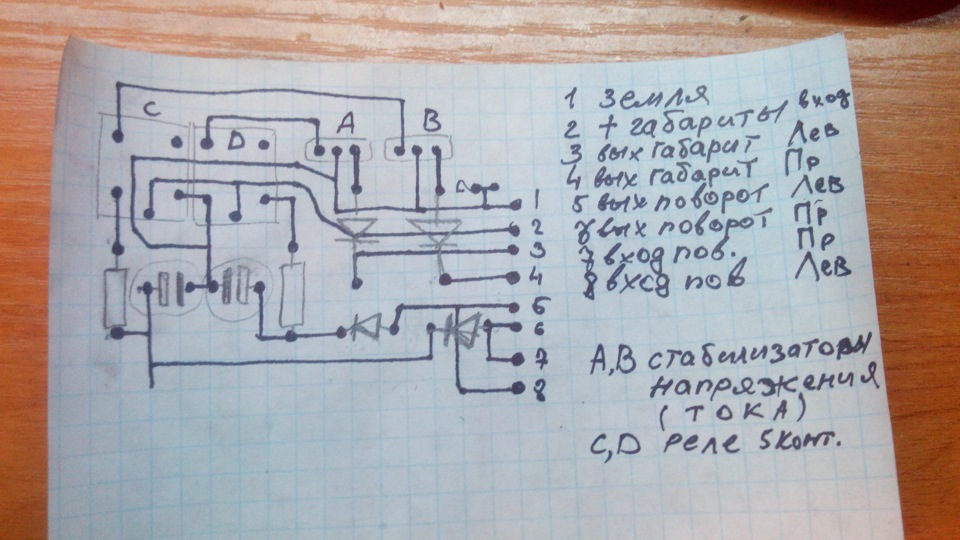 C
D
A
B
1
2
3
4
5
6
7
8
1 земля
2 + габариты вход
3 вых габарит Лев
4 вых габарит Пр
5 вых поворот Лев
6 вых поворот Пр
7 вход пов. Пр
8 вход пов Лев
A,B стабилизаторы
напряжения
(ТОКА)
C,D реле 5 конт.